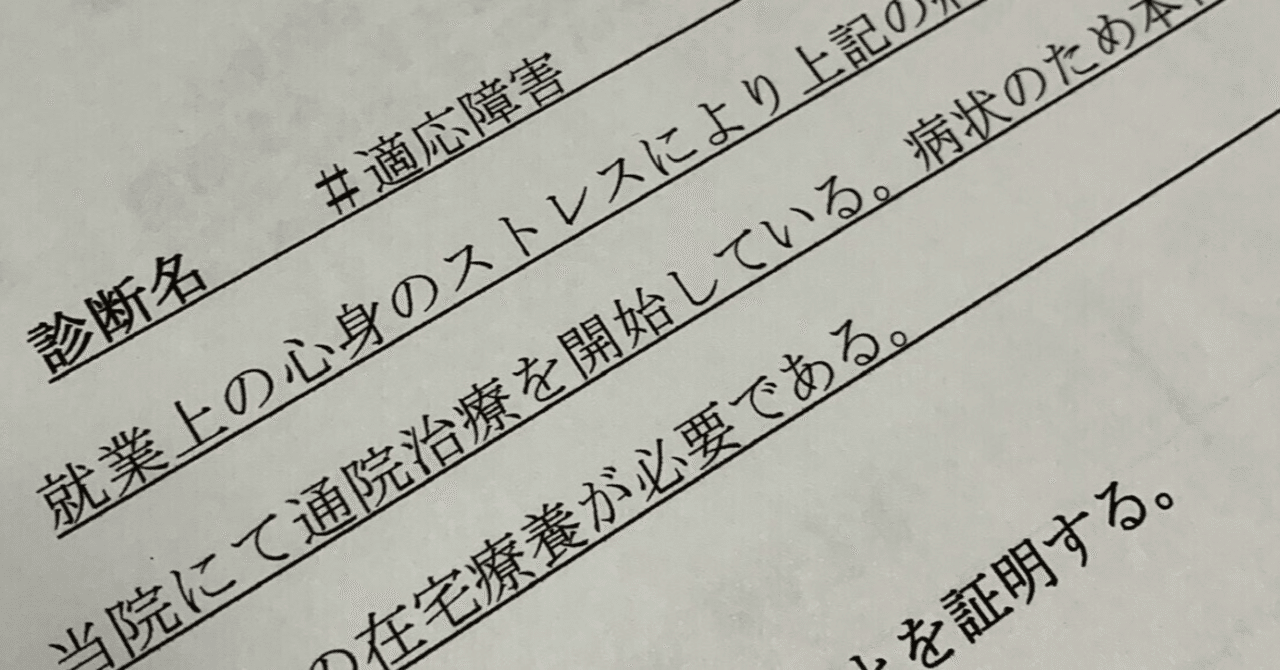 診断名 #適応障害
就業上の心身のストレスにより上記の病
当院にて通院治療を開始している。病状のため本
の在宅療養が必要である。
とを証明する。